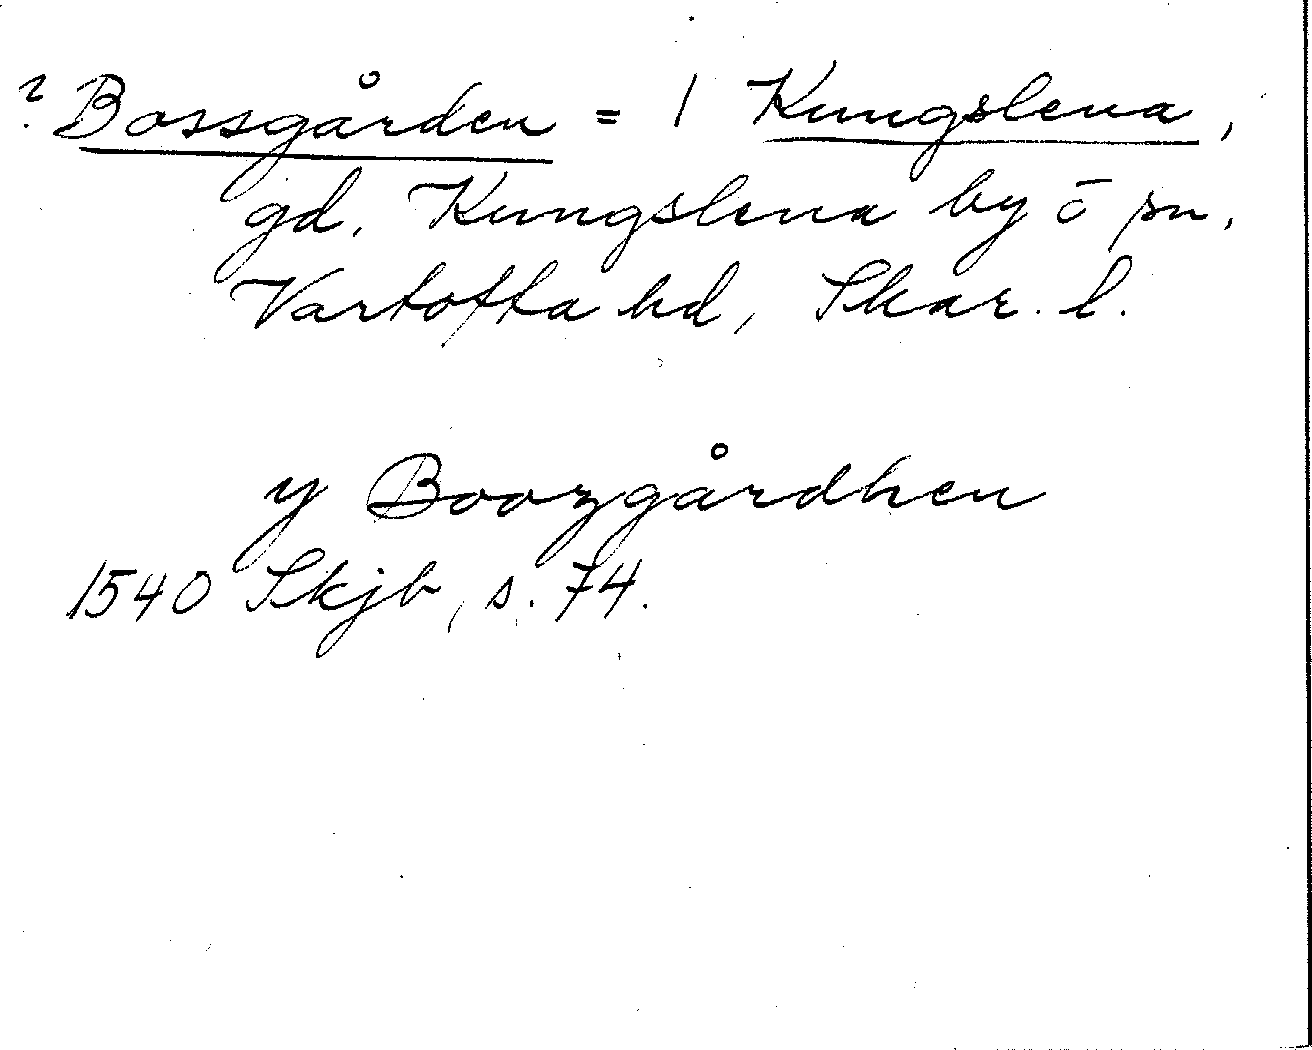 ? Bossgården = 1 Kungslena,
gd, Kungslena by o sn,
Vartofta hd, Skar. l.
y Boozgårdhen
1540 Skjb, s. 74.